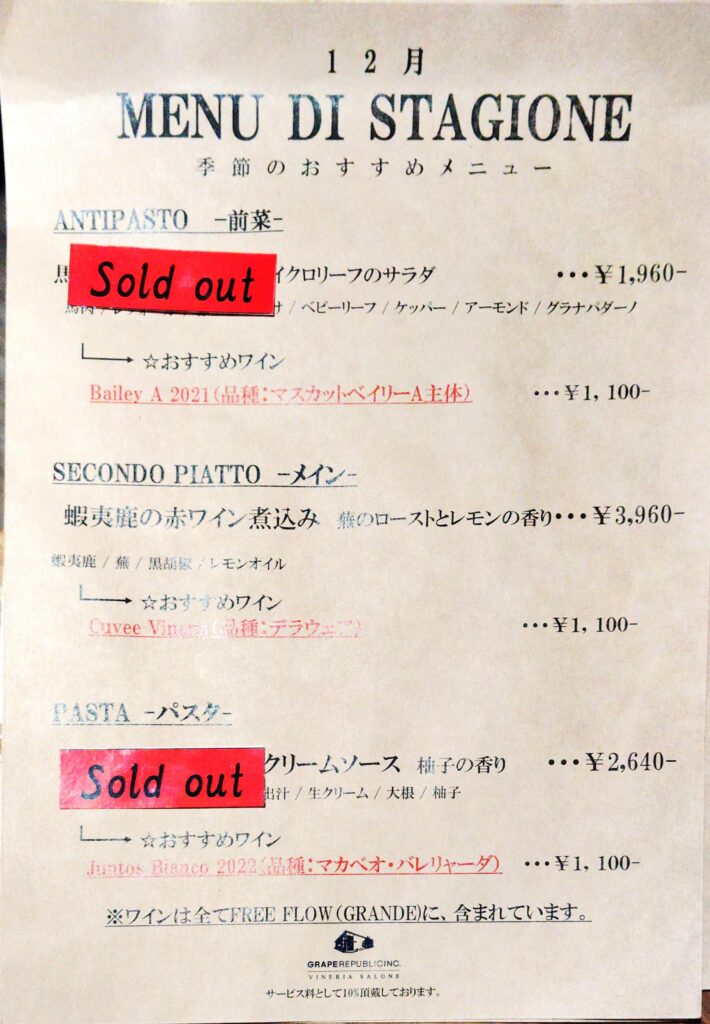 12月
MENU DI STAGIONE
季節のおすすめメニュー
ANTIPASTO -前菜-
Sold out
イクロリーフのサラダ ・・・¥1,960-
/ ベビーリーフ / ケッパー / アーモンド / グラナパダーノ
☆おすすめワイン
Bailey A 2021(品種:マスカットベイリーA主体) ・・・¥1, 100-
SECONDO PIATTO -メイン-
蝦夷鹿の赤ワイン煮込み 蕪のローストとレモンの香り・・・¥3,960-
蝦夷鹿 / 蕪 / 黒胡椒 / レモンオイル
☆おすすめワイン
Cuvee (品種:デラウェア) ・・・¥1, 100-
PASTA -パスタ-
Sold out
クリームソース 柚子の香り ・・・¥2,640-
出汁 / 生クリーム / 大根 / 柚子
☆おすすめワイン
Juntos Bianco 2022(品種:マカベオ・パレリャーダ) ・・・¥1, 100-
※ワインは全てFREE FLOW(GRANDE)に、含まれています。
GRAPEREPUBLICINC.
VINERIA SALONE
サービス料として10%頂戴しております。